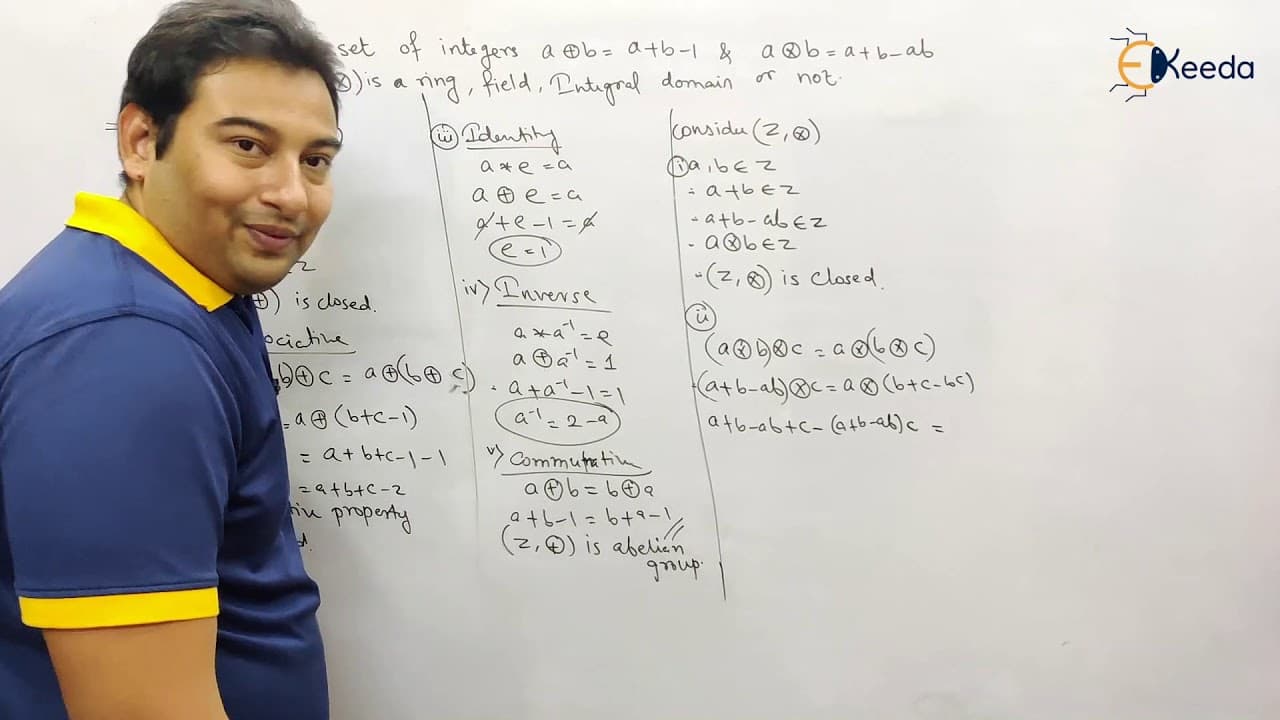 set of integers a⊕b = a+b-1 & a⊗b = a+b-ab
⊗) is a ring, field, Integral domain or not.
EKeeda
⊕) is closed.
b)⊕c = a⊕(b⊕c)
= a⊕(b+c-1)
= a+b+c-1-1
= a+b+c-2
property
iii) Identity
a*e = a
a⊕e = a
a+e-1 = a
e = 1
iv) Inverse
a*a⁻¹ = e
a⊕a⁻¹ = 1
a+a⁻¹-1 = 1
a⁻¹ = 2-a
v) Commutative
a⊕b = b⊕a
a+b-1 = b+a-1
(Z, ⊕) is abelian
group.
Consider (Z, ⊗)
i) a, b ∈ Z
∴ a+b ∈ Z
∴ a+b-ab ∈ Z
∴ a⊗b ∈ Z
∴ (Z, ⊗) is Closed.
ii)
(a⊗b)⊗c = a⊗(b⊗c)
∴ (a+b-ab)⊗c = a⊗(b+c-bc)
a+b-ab+c-(a+b-ab)c =